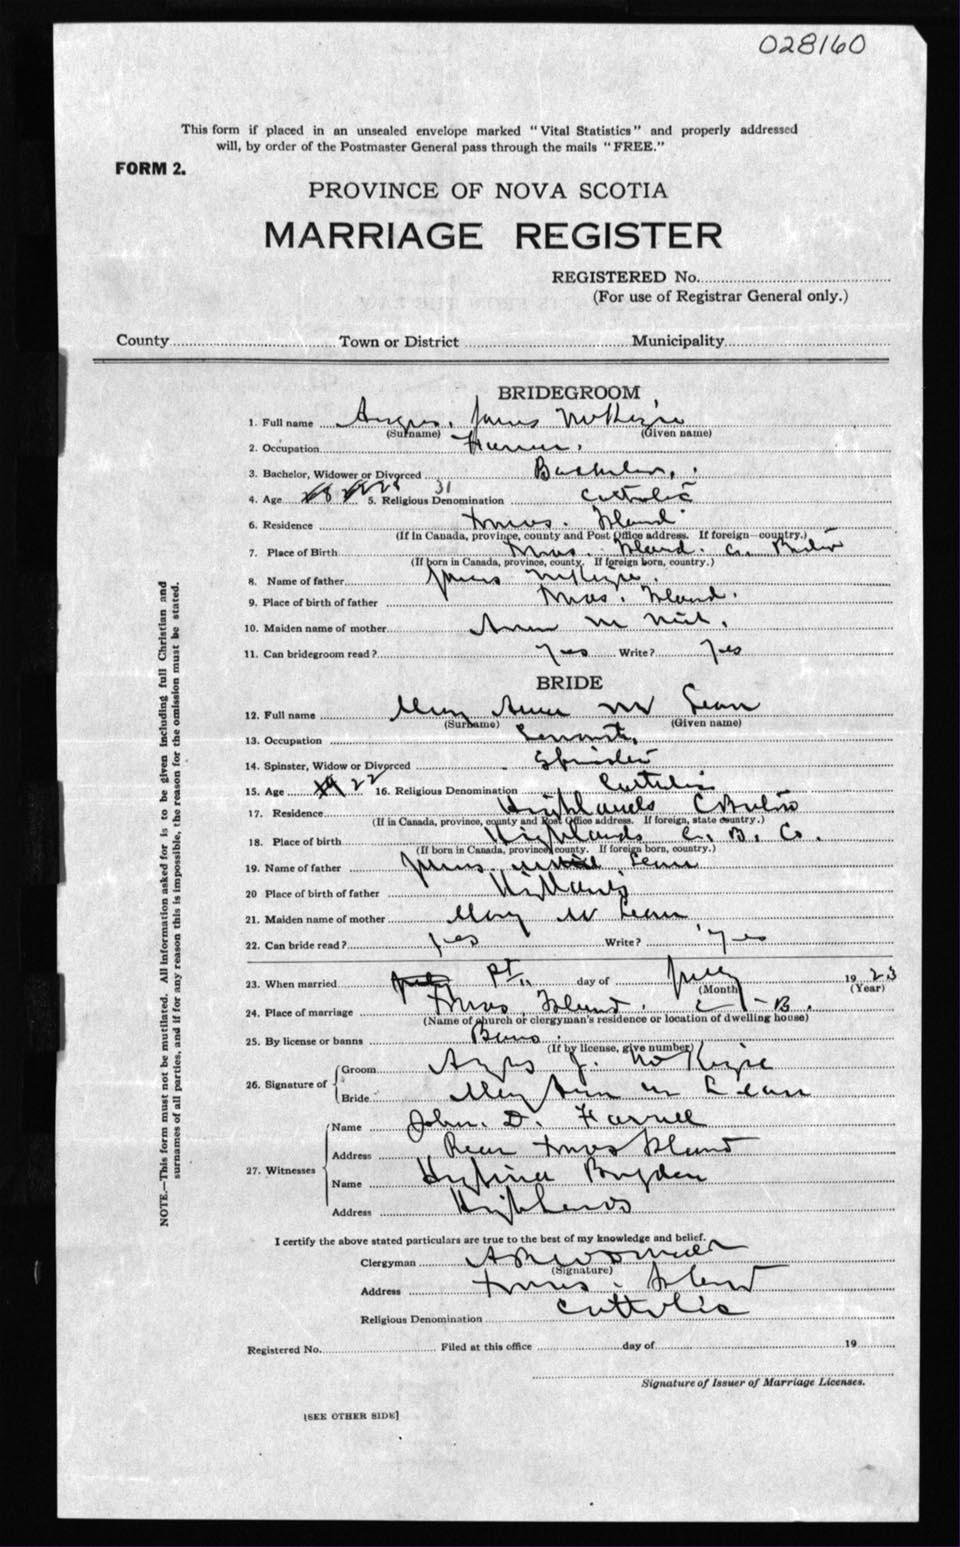 028160
This form if placed in an unsealed envelope marked "Vital Statistics" and properly addressed
will, by order of the Postmaster General pass through the mails "FREE."
FORM 2.
PROVINCE OF NOVA SCOTIA
MARRIAGE REGISTER
REGISTERED No.
(For use of Registrar General only.)
County Town or District Municipality
BRIDEGROOM
1. Full name Angus James McKenzie
(Surname) (Given name)
2. Occupation Farmer.
3. Bachelor, Widower or Divorced Bachelor
4. Age 31 5. Religious Denomination Catholic
6. Residence Xmas. Island
(If in Canada, province, county and Post Office address. If foreign—country.)
7. Place of Birth Xmas. Island. C. Breton
(If born in Canada, province, county. If foreign born, country.)
8. Name of father James McKenzie.
9. Place of birth of father Xmas. Island.
10. Maiden name of mother Ann McNeil.
11. Can bridegroom read? Yes Write? Yes
BRIDE
12. Full name Mary Anne McLean
(Surname) (Given name)
13. Occupation Servant.
14. Spinster, Widow or Divorced Spinster
15. Age 22 16. Religious Denomination Catholic
17. Residence Highlands C Breton
(If in Canada, province, county and Post Office address. If foreign, state country.)
18. Place of birth Highlands C. B. Co.
(If born in Canada, province, county. If foreign born, country.)
19. Name of father James Lean
20 Place of birth of father Highlands
21. Maiden name of mother Mary McLean
22. Can bride read? Yes Write? Yes
23. When married day of July 1923
(Month) (Year)
24. Place of marriage Xmas Island. C-B.
(Name of church or clergyman's residence or location of dwelling house)
25. By license or banns Banns.
(If by license, give number)
26. Signature of Groom Angus J. McKenzie
Bride Mary Ann McLean
27. Witnesses Name John. D. Farrell
Address Rear Xmas Island
Name
Address Highlands
I certify the above stated particulars are true to the best of my knowledge and belief.
Clergyman
(Signature)
Address Xmas. Island
Religious Denomination Catholic
Registered No. Filed at this office day of 19
Signature of Issuer of Marriage Licenses.
[SEE OTHER SIDE]
NOTE.—This form must not be mutilated. All information asked for is to be given including full Christian and
surnames of all parties, and if for any reason this is impossible, the reason for the omission must be stated.